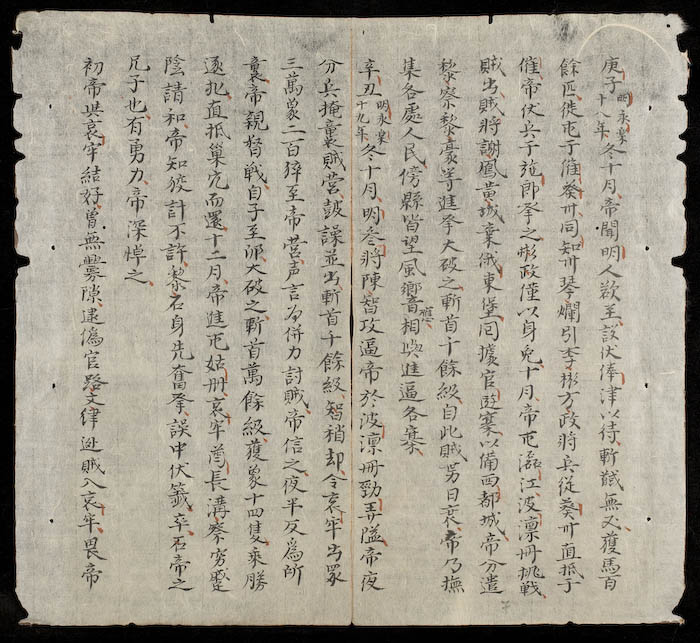 庚子明永樂十八年冬十月帝聞明人欲至設伏俸津以待斬馘無又獲馬百
餘匹徙屯于催葵州同知州琴爛引李彬方政將兵從葵州直抵于
催帝伏兵于施郎擊之彬政僅以身免十月帝屯江波凛册挑戰
賊出賊將謝鳳黄城棄俄東堡同據官遊寨以備西都城帝分遣
黎察黎豪等進擊大破之斬首千餘級自此賊勢日衰帝乃撫
集各處人民傍縣皆望風響應相與進逼各寨
辛丑明永樂十九年冬十月明叅將陳智攻逼帝於波凛册勁弄隘帝夜
分兵掩襲賊營鼓譟並出斬首千餘級智稍却令哀牢出眾
三萬象二百猝至帝营声言為併力討賊帝信之夜半反為所
襲帝親督戰自子至夘大破之斬首萬餘級獲象十四隻乘勝
逐北直抵巢穴而還十二月帝進屯姑册哀牢酋長溝察窮蹙
陰請和帝知狡計不許黎石身先奮擊誤中伏籤卒石帝之
兄子也有勇力帝深悼之
初帝與哀牢結好曾無釁隙逮偽官路文律逃賊入哀牢畏帝